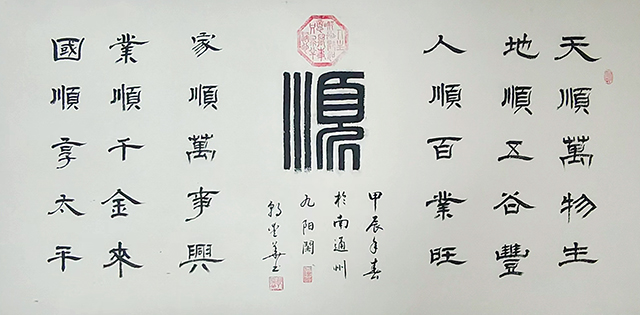 天順萬物生
地順五谷豐
人順百業旺
順
甲辰年春
於南通州
九阳閣
家順萬事興
業順千金來
國順享太平